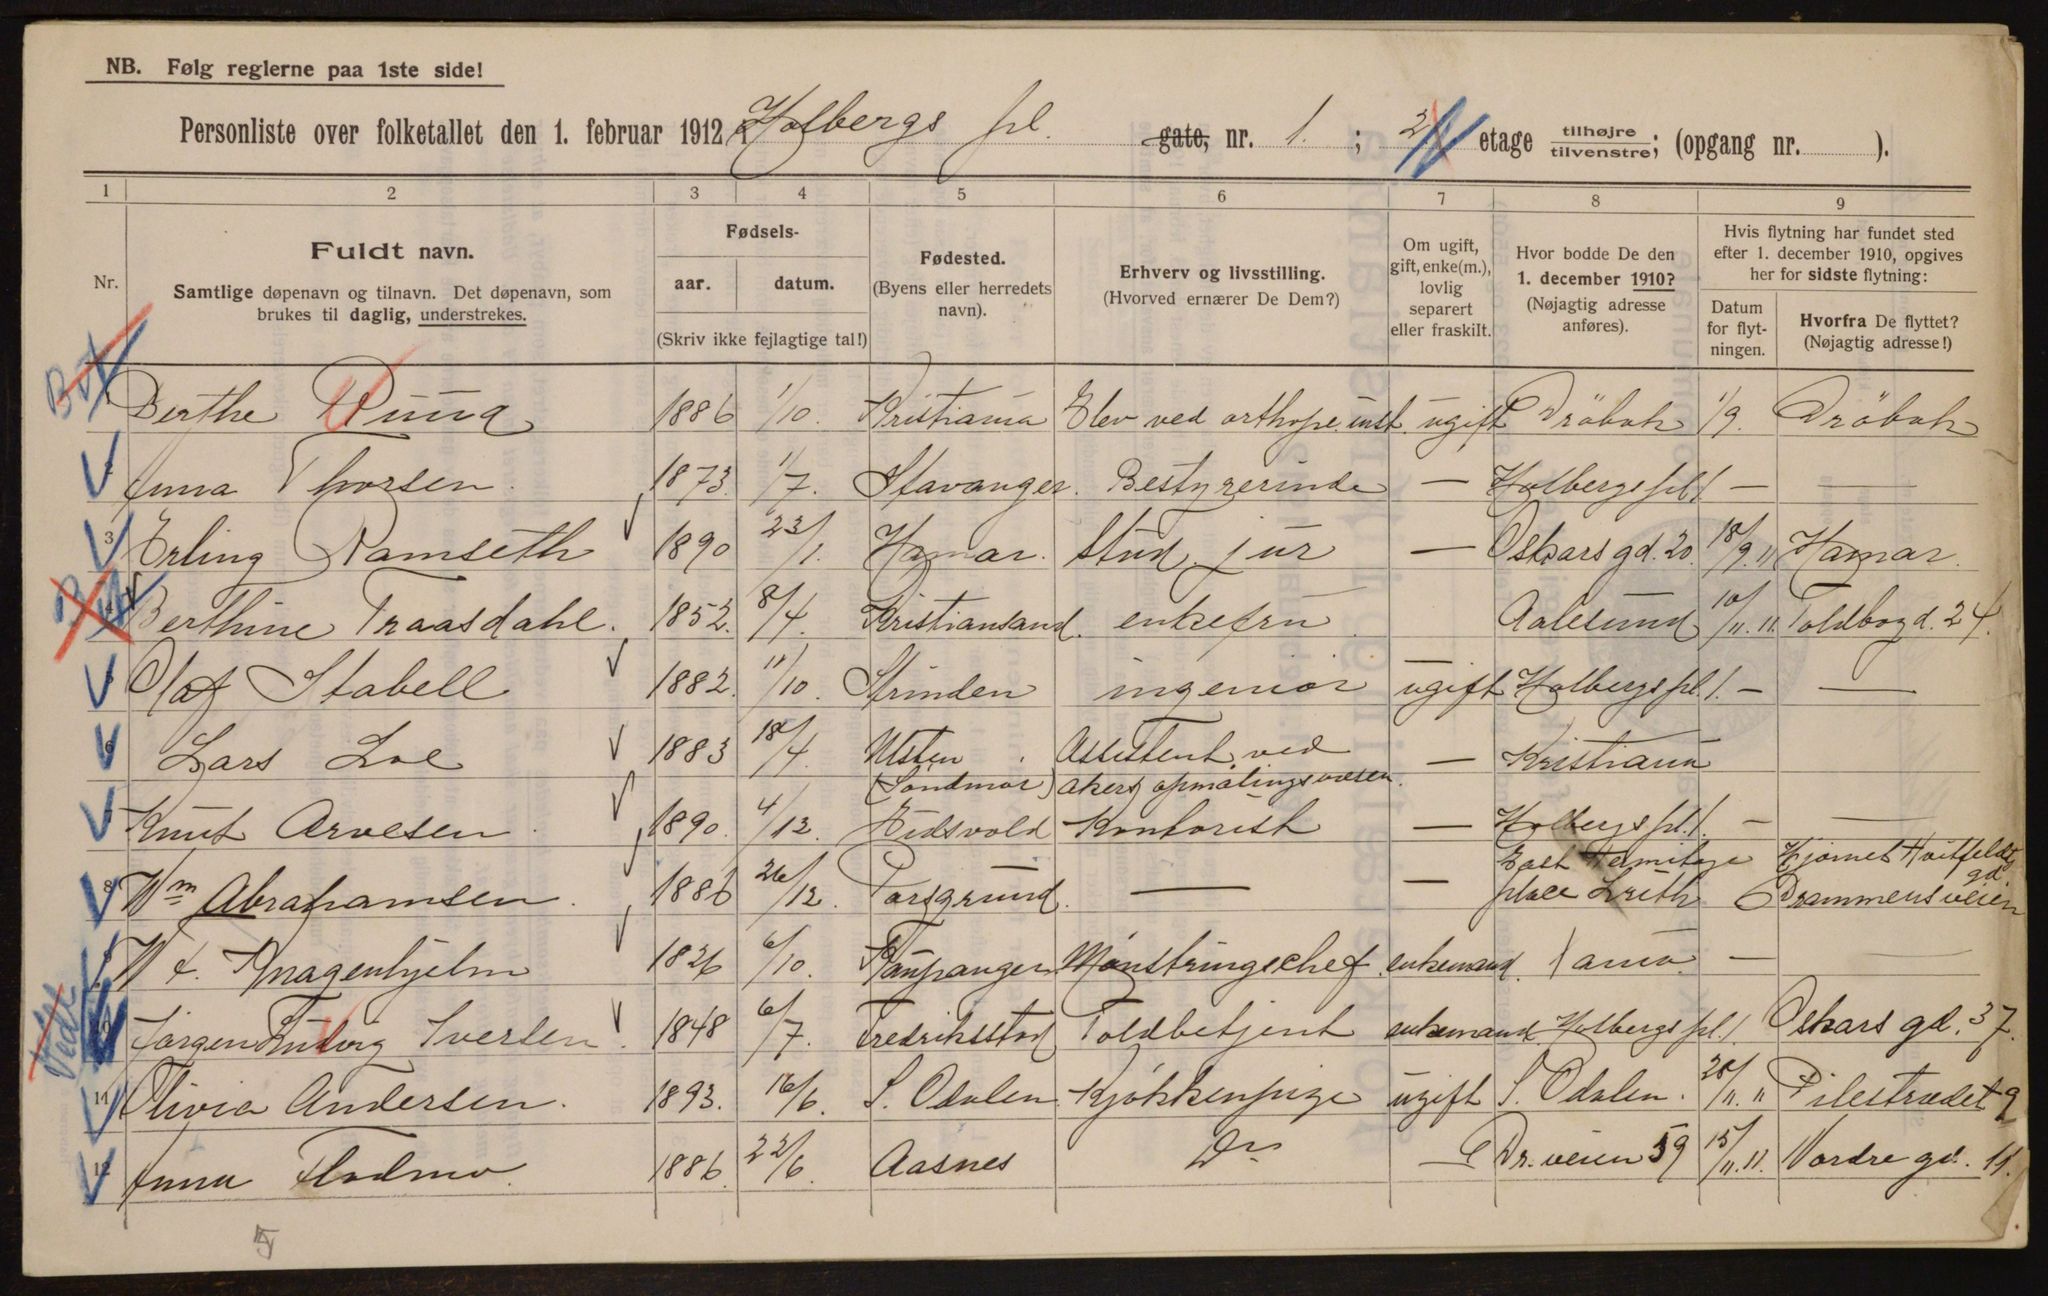 NB. Følg reglerne paa 1ste side!
Personliste over folketallet den 1. februar 1912 i Holbergs pl. gate, nr. 1. ; 2 etage tilhøjre tilvenstre; (opgang nr. ).
1 2 3 4 5 6 7 8 9
Nr.
Fuldt navn.
Samtlige døpenavn og tilnavn. Det døpenavn, som
brukes til daglig, understrekes.
Fødsels-
aar. datum.
(Skriv ikke fejlagtige tal!)
Fødested.
(Byens eller herredets
navn).
Erhverv og livsstilling.
(Hvorved ernærer De Dem?)
Om ugift,
gift, enke(m.),
lovlig
separert
eller fraskilt.
Hvor bodde De den
1. december 1910?
(Nøjagtig adresse
anføres).
Hvis flytning har fundet sted
efter 1. december 1910, opgives
her for sidste flytning:
Datum
for flyt-
ningen.
Hvorfra De flyttet?
(Nøjagtig adresse!)
Berthe Ruud 1886 1/10. Kristiania Elev ved orthope. inst. ugift Dröbak 1/9. Dröbak
2 Anna Thorsen. 1873. 1/7. Stavanger. Bestyrerinde — Holbergs pl. 1 — —
3 Erling Ramseth 1890 23/1. Hamar. Stud. jur — Oskars gd. 20. 18/9. 11 Hamar.
4 Berthine Traasdahl. 1852. 8/4. Kristiansand. enkefru Aalesund 10/11. 11. Toldbogd. 24.
5 Olaf Stabell 1882. 11/10. Strinden ingeniör ugift Holbergs pl. 1. — —
6 Lars Loe 1883 18/4. Ulsten Assistent ved — Kristiania
(Söndmör) Akers opmålingsvæsen.
7 Knut Arvesen 1890. 4/12. Eidsvold Kontorist — Holbergs pl. 1. — —
8 Wm Abrahamsen. 1886 26/12. Porsgrund. — — East Hermitage Hjørnet Hvitfeldts gd
place Leith Drammensveien
9 W. Knagenhjelm 1826 6/10. Kaupanger Mønstringschef enkemand. — —
10 Jørgen Ludvig Iversen. 1848 6/7. Fredriksstad Toldbetjent enkemand Holbergs pl. 1. Oskars gd. 37.
Vedtl
11 Olivia Andersen. 1893. 16/6. S. Odalen. Kjøkkenpige ugift S. Odalen. 28/11. " Pilestrædet 9
12 Anna Flodmo. 1886. 22/6. Aasnes Do — Dr. veien 59 15/11. 11. Nordre gd. 11.
5